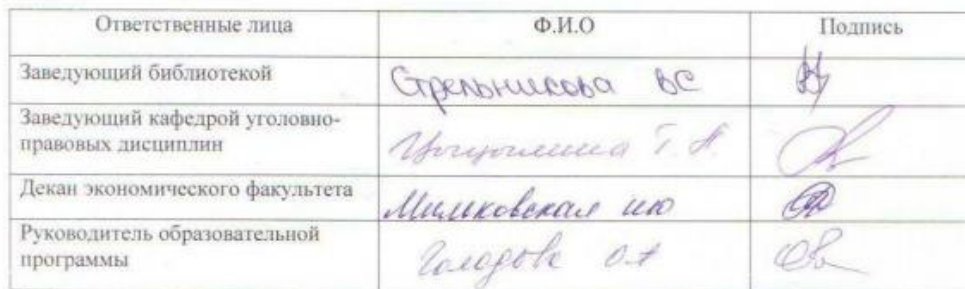 Ответственные лица Ф.И.О Подпись
Заведующий библиотекой Стрельникова ВС
Заведующий кафедрой уголовно-
правовых дисциплин Т.Н.
Декан экономического факультета Миликовская ИЮ
Руководитель образовательной
программы Голодова О.А